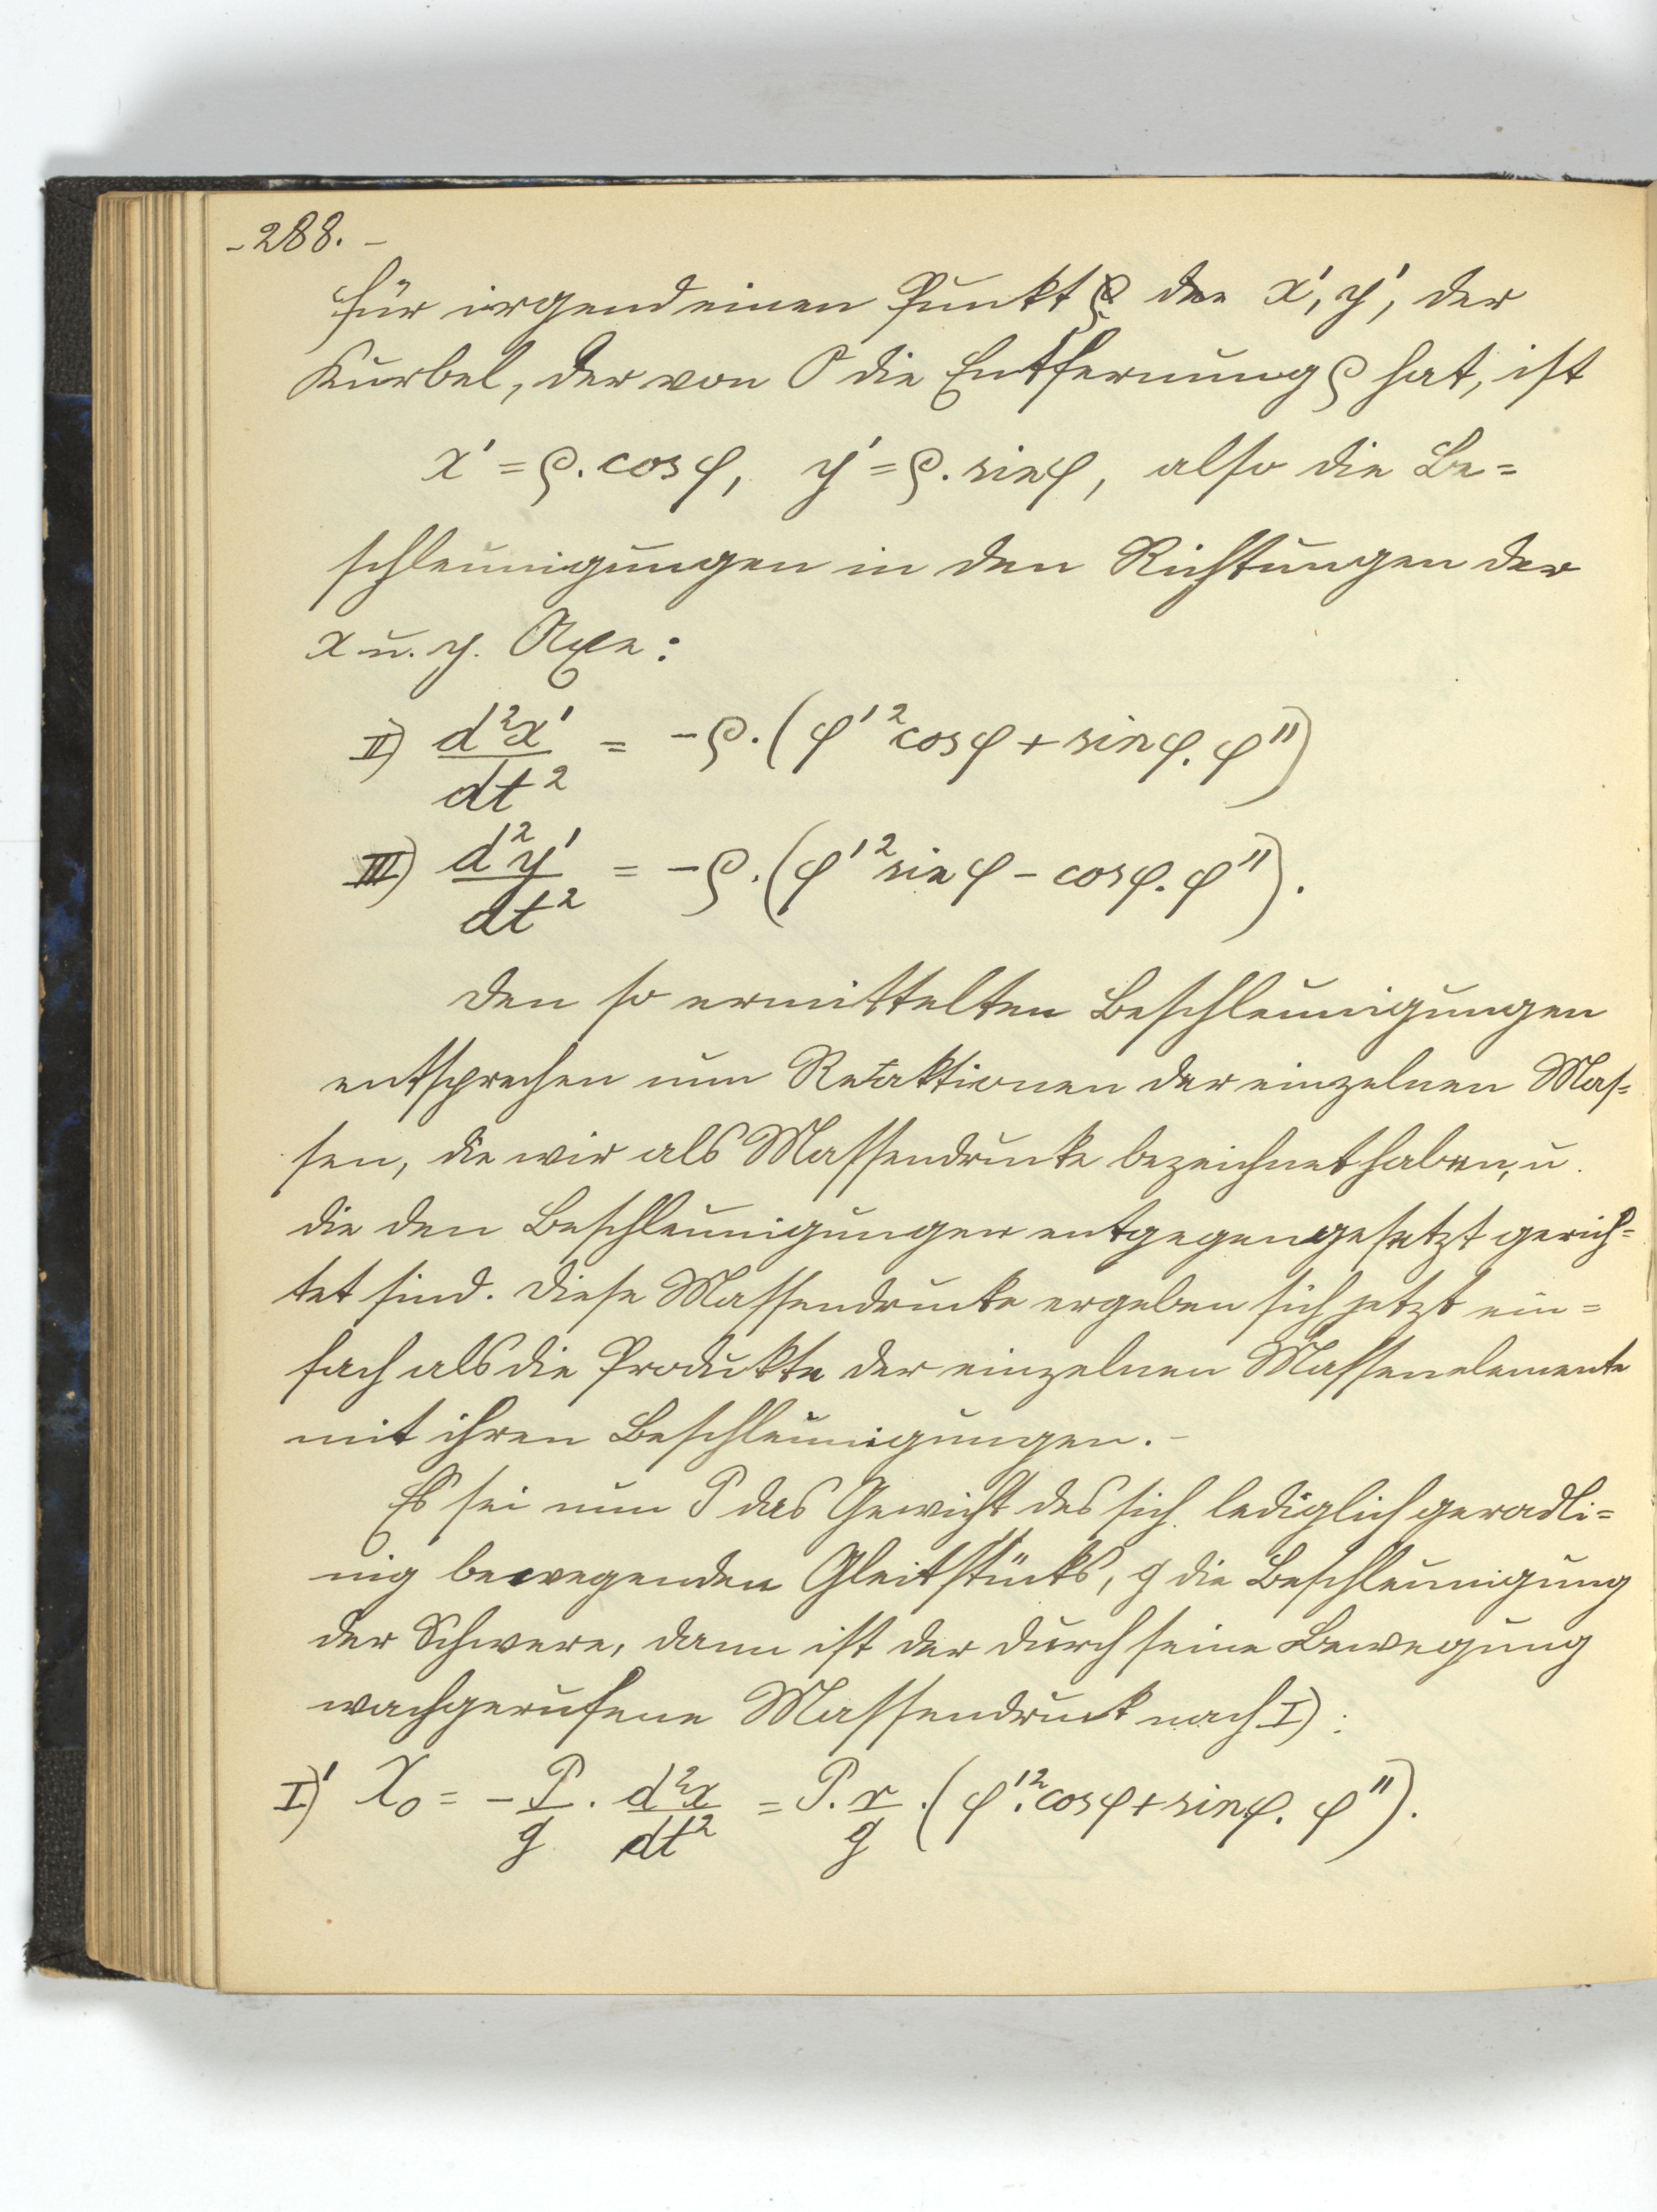 - 288. -
für irgend einen Punkt ϱ der x', y', der
Kurbel, der von O die Entfernung ϱ hat, ist
x' = ϱ. cos φ, y' = ϱ. sin φ, also die Be=
schleunigungen in den Richtungen der
x u. y. Axe:
II) d²x'/dt² = -ϱ. (φ'² cos φ + sin φ. φ'')
III) d²y'/dt² = -ϱ. (φ'² sin φ - cos φ. φ'').
Den so ermittelten Beschleunigungen
entsprechen nun Reaktionen der einzelnen Mas=
sen, die wir als Massendrucke bezeichnet haben, u.
die den Beschleunigungen entgegengesetzt gerich=
tet sind. Diese Massendrucke ergeben sich jetzt ein=
fach als die Produkte der einzelnen Massenelemente
mit ihren Beschleunigungen. -
Es sei nun P das Gewicht des sich lediglich geradli=
nig bewegenden Gleitstücks, g die Beschleunigung
der Schwere, dann ist der durch seine Bewegung
wachgerufene Massendruck nach I):
I)' X₀ = - P/g . d²x/dt² = P. r/g . (φ'.² cos φ + sin φ. φ'').